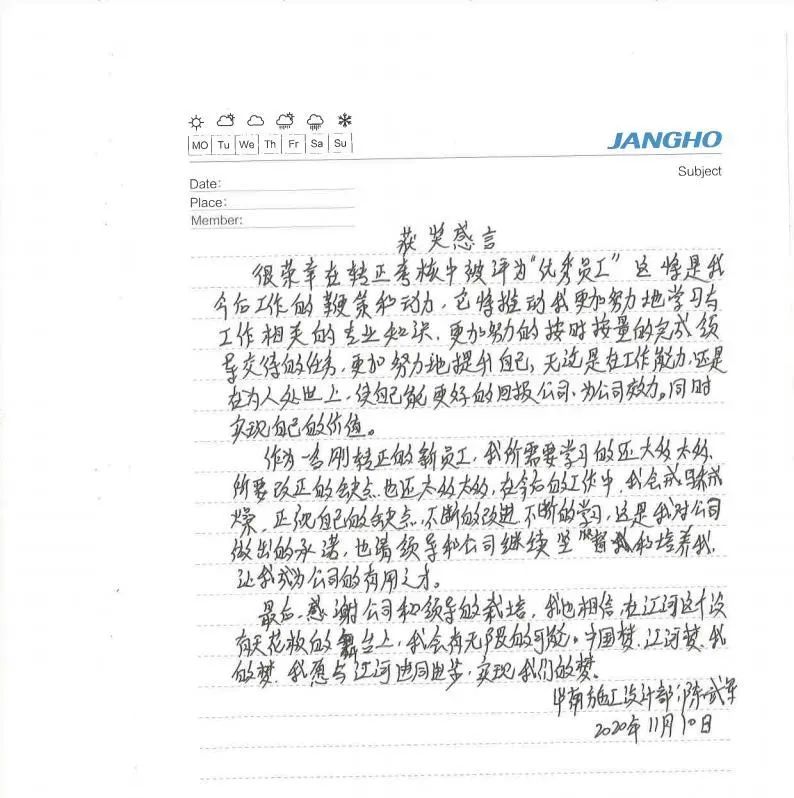 MO Tu We Th Fr Sa Su
JANGHO
Subject
Date:
Place:
Member:
获奖感言
很荣幸在转正考核中被评为“优秀员工”这将是我
今后工作的鞭策和动力,它将推动我更加努力地学习与
工作相关的专业知识,更加努力的按时按量的完成领
导交待的任务,更加努力地提升自己,无论是在工作能力,还是
在为人处世上,使自己能更好的回报公司、为公司效力。同时
实现自己的价值。
作为一名刚转正的新员工,我所需要学习的还太多太多,
所要改正的缺点也还太多太多,在今后的工作中,我会戒骄戒
燥,正视自己的缺点,不断的改进,不断的学习,这是我对公司
做出的承诺,也请领导和公司继续 和培养我,
让我成为公司的有用之才。
最后,感谢公司和领导的栽培,我也相信在江河这个没
有天花板的舞台上,我会有无限的可能。中国梦,江河梦,我
的梦,我愿与江河共同进步,实现我们的梦。
华南施工设计部:陈武军
2020年11月10日